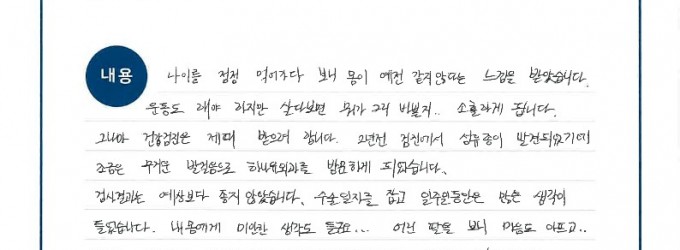 내용
나이를 점점 먹어가다 보니 몸이 예전 같지않다는 느낌을 받았습니다.
운동도 해야 하지만 살다보면 뭐가 그리 바쁠지.. 소홀하게 됩니다.
그나마 건강검진은 제때 받으려 합니다. 2년전 검진에서 섬유종이 발견되었기에
조금은 무거운 발걸음으로 하나유외과를 방문하게 되었습니다.
검사결과는 예상보다 좋지 않았습니다. 수술일자를 잡고 일주일동안은 많은 생각이
들었습니다. 내 몸에게 미안한 생각도 들고요... 어린 딸을 보니 마음도 아프고..